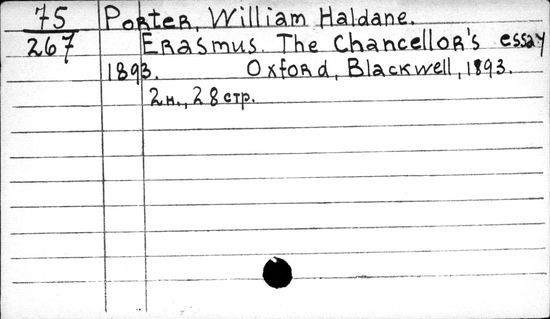 75 Porter, William Haldane.
267 Erasmus. The Chancellor's essay
1893. Oxford, Blackwell, 1893.
2н., 28 стр.